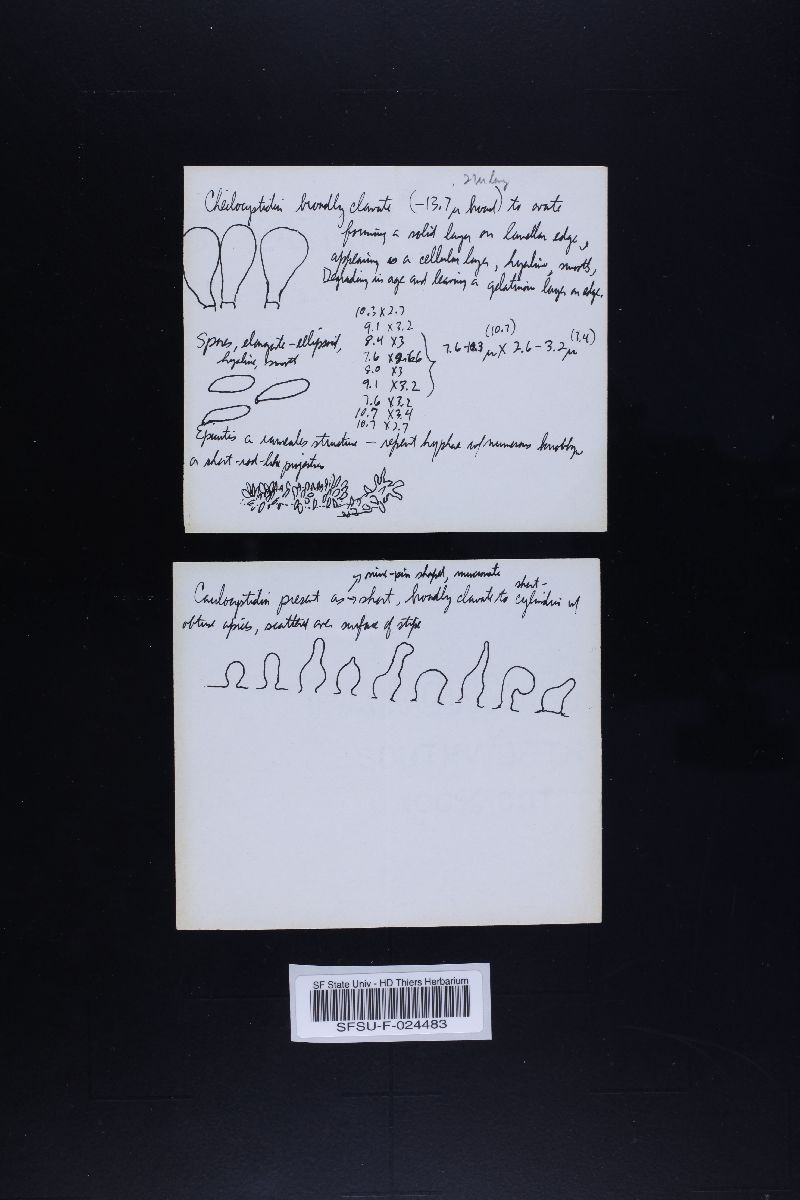 27µ long
Cheilocystidia broadly clavate (-13.7µ broad) to ovate
forming a solid layer on lamellar edge,
appearing as a cellular layer, hyaline, smooth,
Degrading in age and leaving a gelatinous layer on edge.
10.3 x 2.7
9.1 x 3.2
Spores, elongate-ellipsoid,
8.4 x 3
(10.7)
(3.4)
7.6-10.3µ x 2.6-3.2µ
hyaline, smooth
7.6 x 2.6
8.0 x 3
9.1 x 3.2
7.6 x 3.2
10.7 x 3.4
10.7 x 2.7
Epicutis a rameales structure - repent hyphae w/ numerous knobby
or short-rod-like projections
→ nine-pin shaped, mucronate
short-
Caulocystidia present as → short, broadly clavate to cylindric w/
obtuse apices, scattered over surface of stipe
SF State Univ - HD Thiers Herbarium
SFSU-F-024483